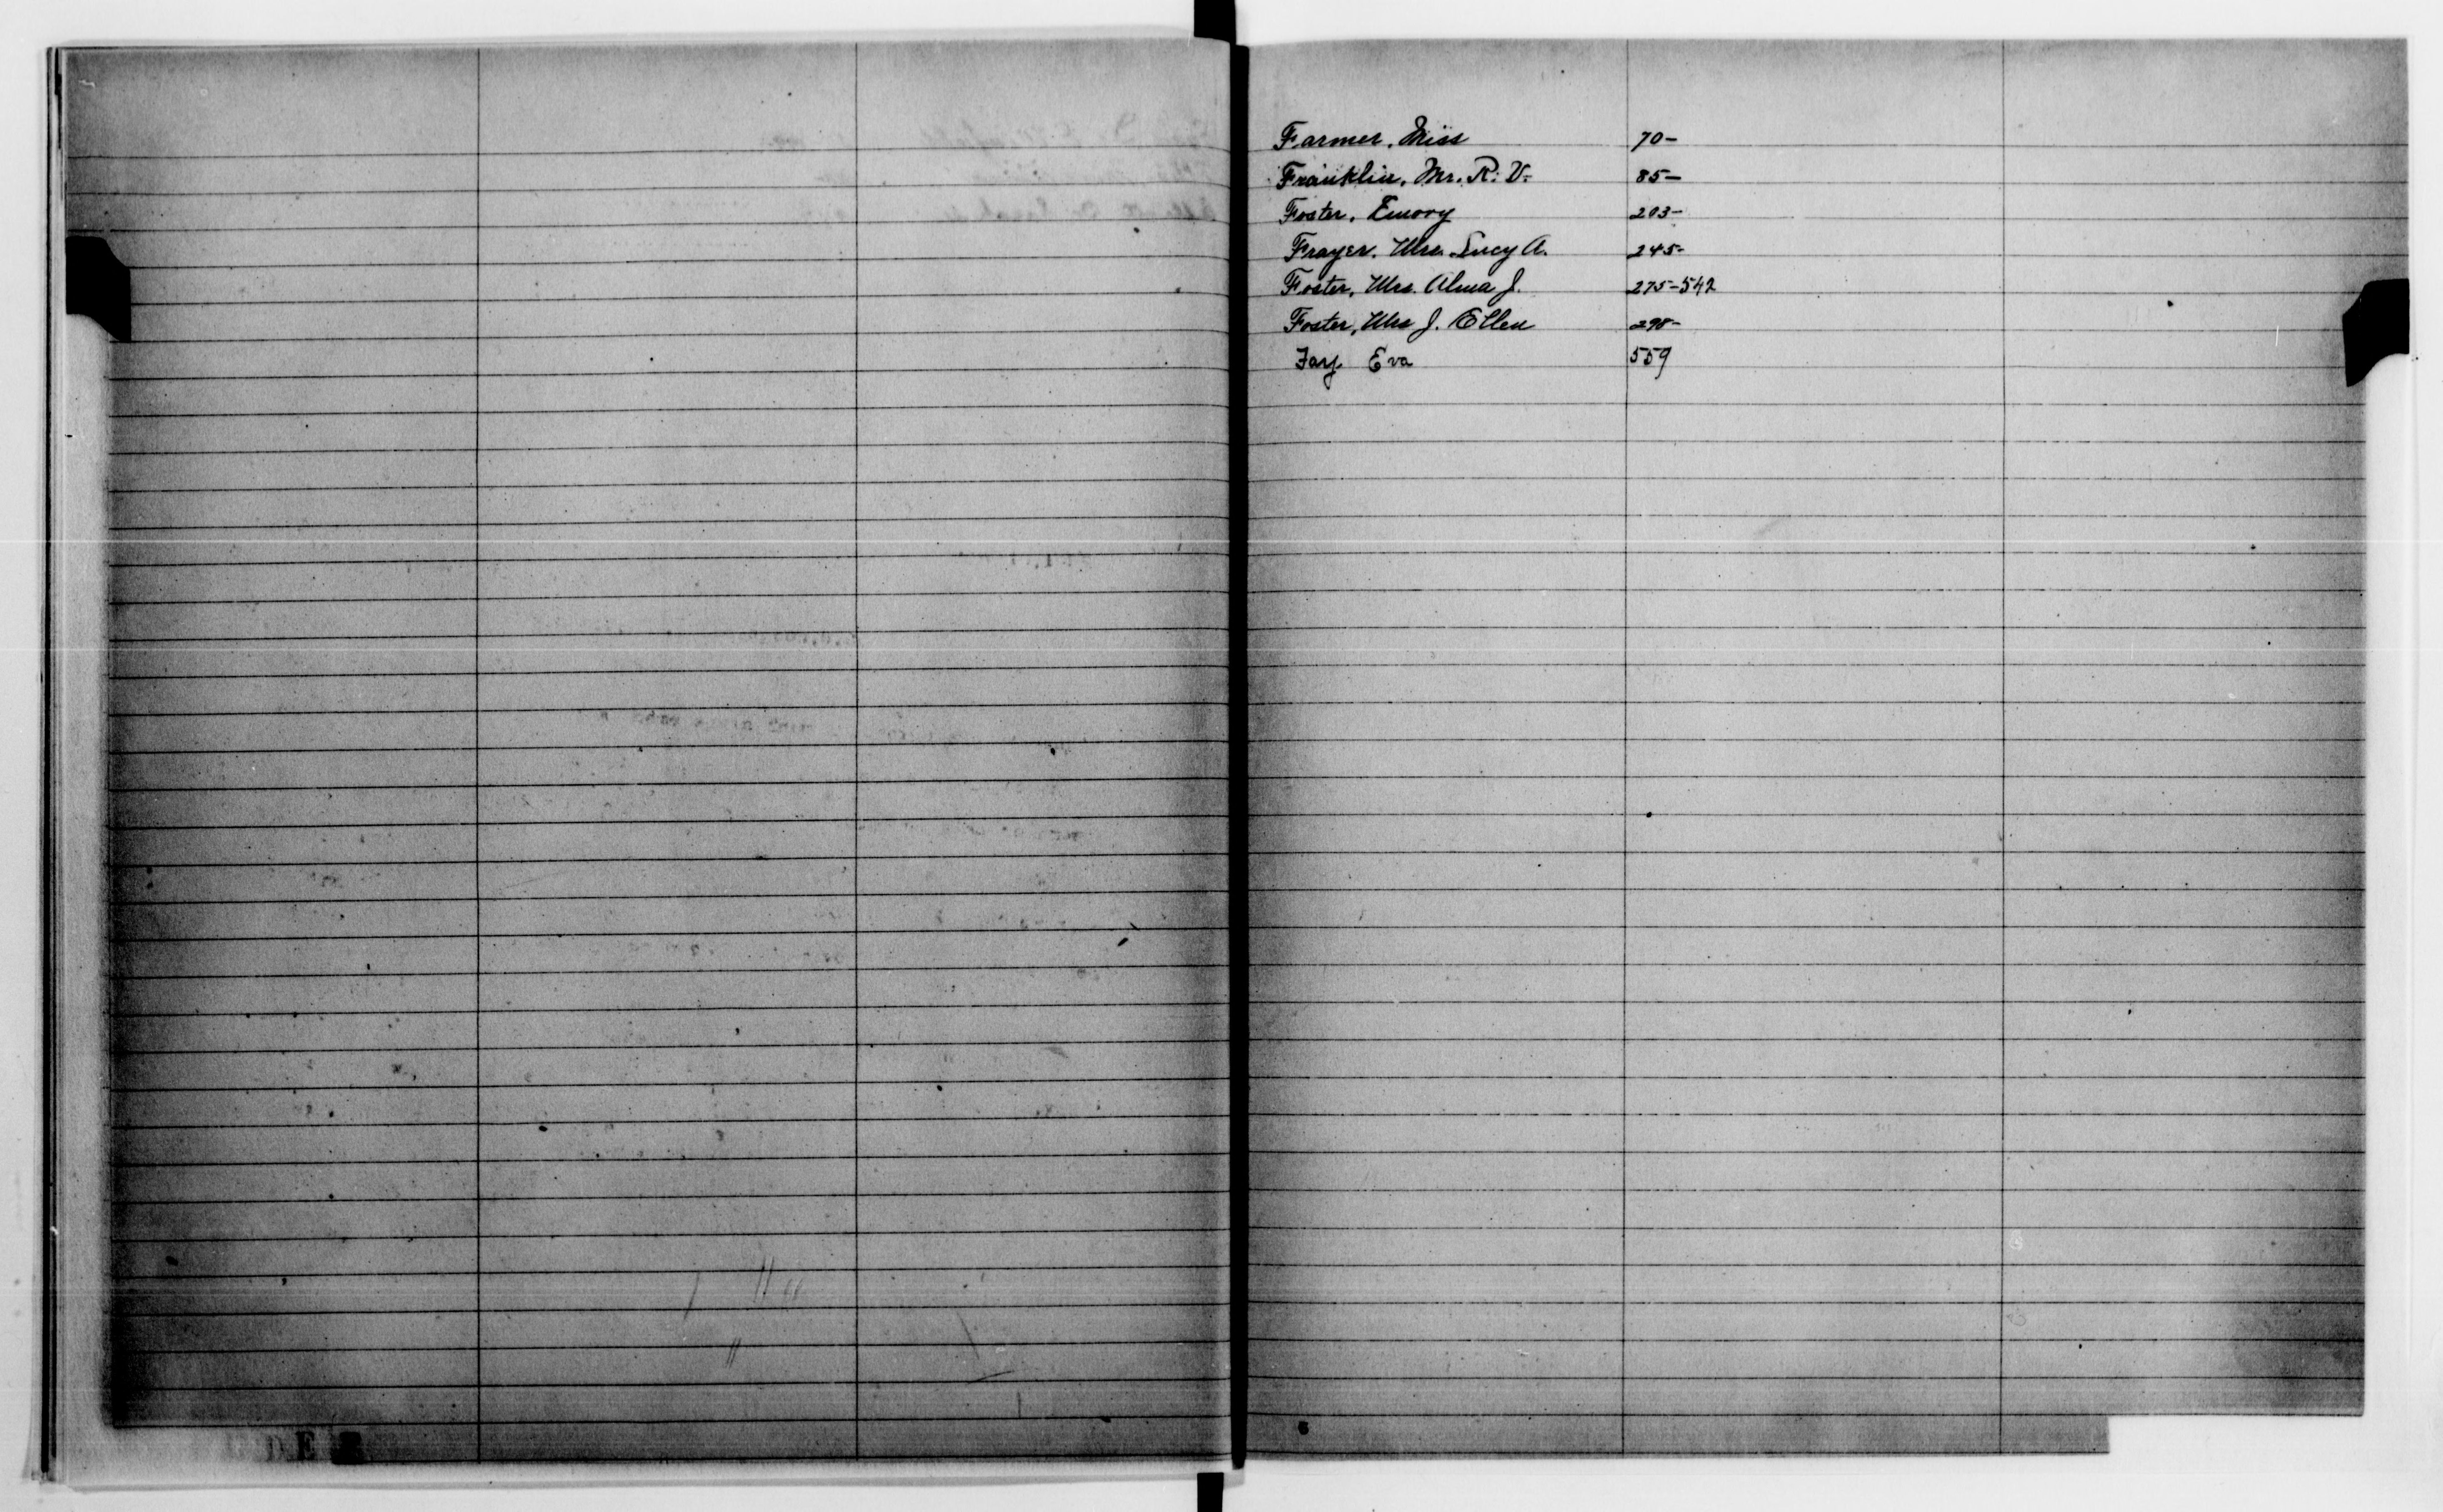 Farmer, Miss 70-
Franklin, Mr. R. V. 85-
Foster, Emory 203-
Frayer, Mrs. Lucy A. 245-
Foster, Mrs. Alma J. 275-542
Foster, Mrs J. Ellen 298-
Fay Eva 559
D E